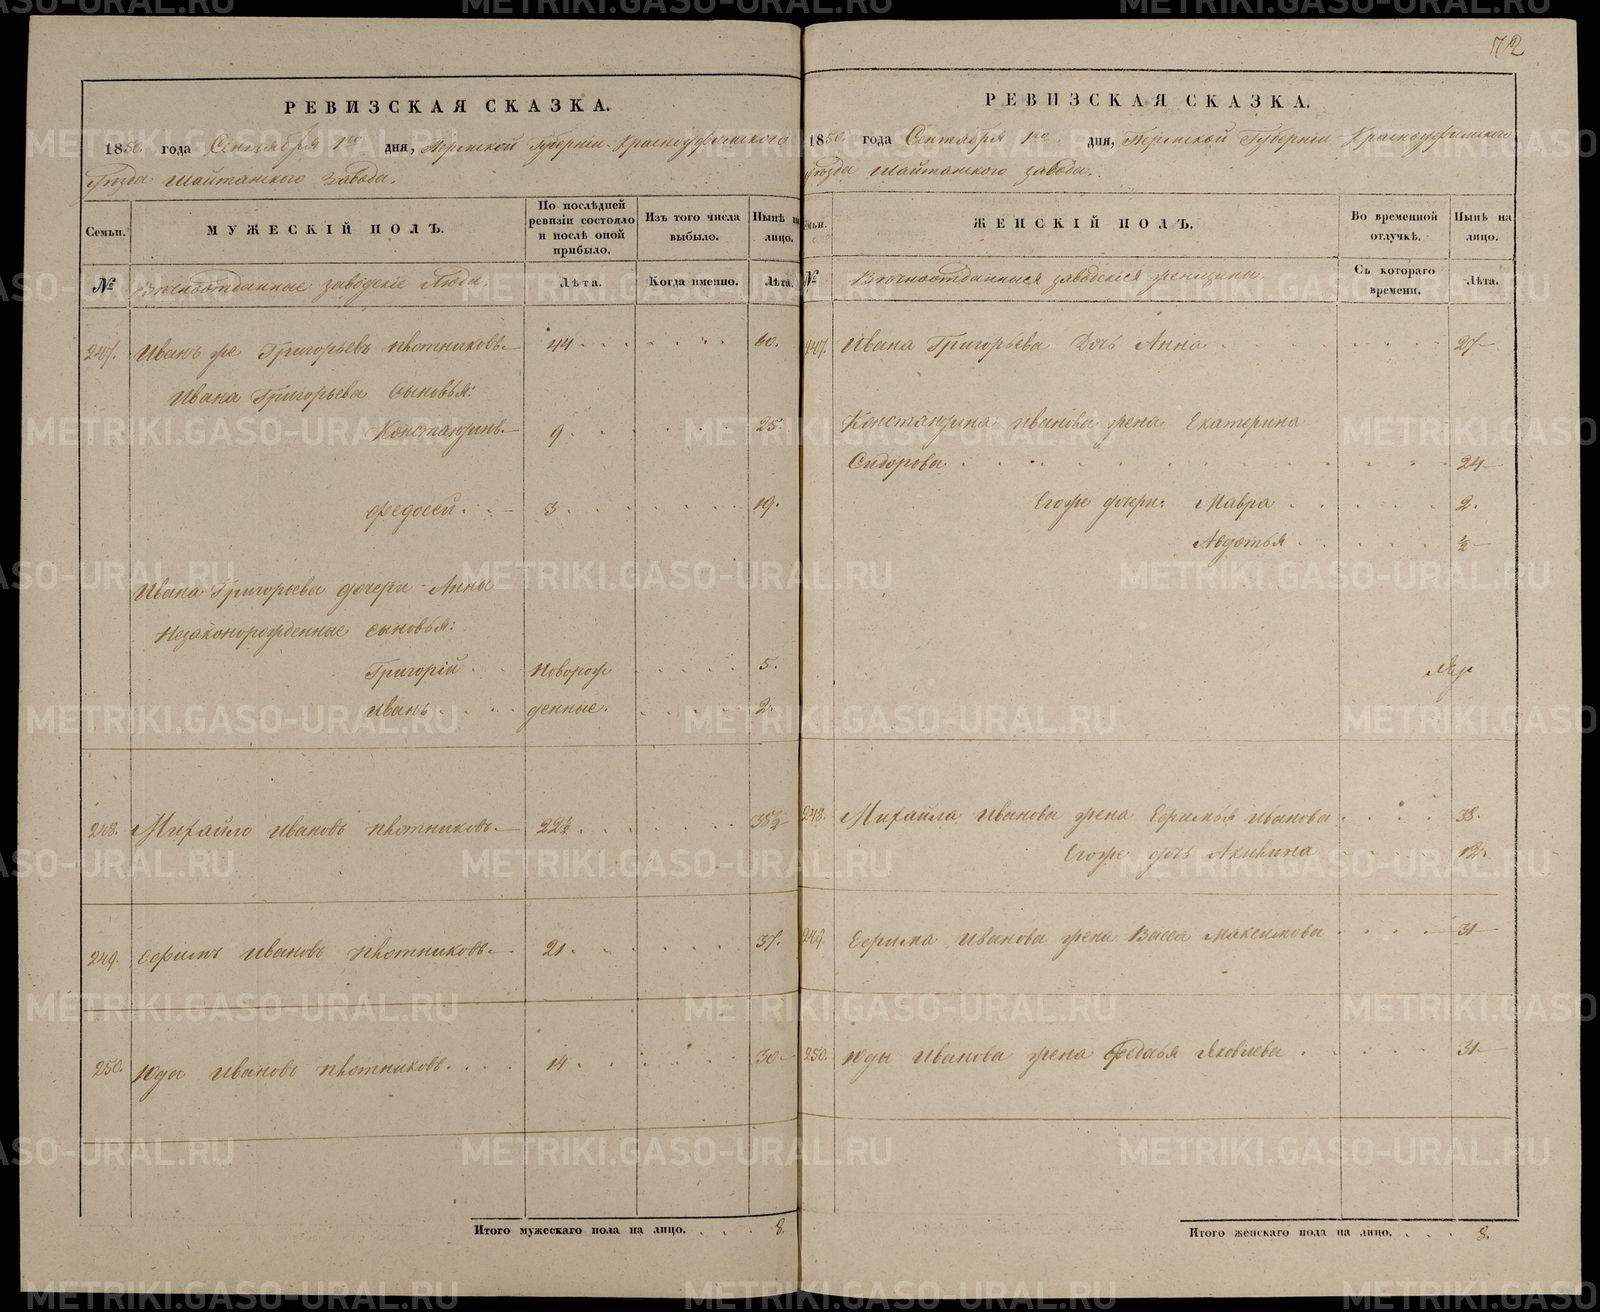 72
РЕВИЗСКАЯ СКАЗКА.
1850 года Сентября 1го дня, Пермской Губерніи Красноуфимского
Уѣзда Шайтанского Завода.
Семьи. МУЖЕСКІЙ ПОЛЪ. По послѣдней ревизіи состояло и послѣ оной прибыло. Изъ того числа выбыло. Нынѣ на лицо.
№ Вѣчноотданные заводскіе Люди. Лѣта. Когда именно. Лѣта.
247. Иванъ же Григорьевъ Плотниковъ 44 60.
Ивана Григорьева Сыновья:
Константинъ 9. 25.
Федосей 3. 19.
Ивана Григорьева дочери Анны
Незаконорожденные сыновья:
ГригорійНово­рож 5.
Иванъ денные. 2.
248. Михайло Ивановъ Плотниковъ 22½ 38½
249. Ефимъ Ивановъ Плотниковъ 21. 37.
250. Юда Ивановъ Плотниковъ 14 30
Итого мужескаго пола на лицо. 8.
РЕВИЗСКАЯ СКАЗКА.
1850 года Сентября 1го дня, Пермской Губерніи Красноуфимского
Уѣзда Шайтанского завода.
Семьи. ЖЕНСКІЙ ПОЛЪ. Во временной отлучкѣ. Нынѣ на лицо.
№ Вѣчноотданныя заводскія женщины. Съ котораго времени. Лѣта.
247. Ивана Григорьева Дочь Анна 27
Константина Иванова жена Екатерина
Сидорова 24
Егоже дочери: Мавра 2.
Авдотья ½
248. Михайла Иванова жена Ефимья Иванова 38.
Егоже дочь Акилина 12.
249. Ефима Иванова жена Васса Максимова 31
250. Юды Иванова жена Федосья Яковлева 31
Итого женскаго пола на лицо. 8.
METRIKI.GASO-URAL.RU